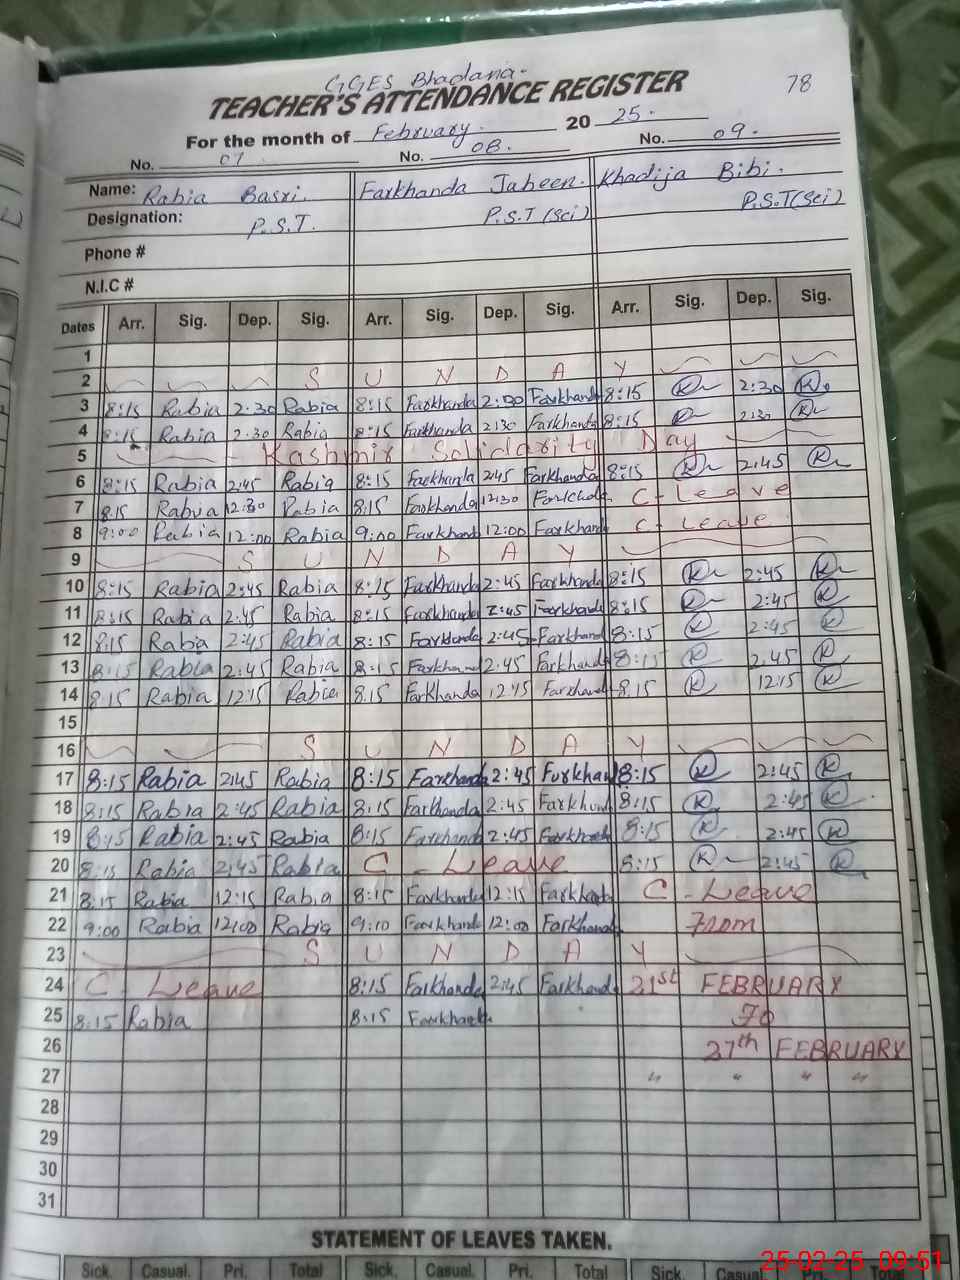 GGES Bhadana
78
TEACHER'S ATTENDANCE REGISTER
For the month of February. 20 25.
No. 07 No. 08. No. 09.
Name: Rabia Basri. Farkhanda Jabeen. Khadija Bibi.
Designation: P.S.T. P.S.T (Sci) P.S.T (Sci)
Phone #
N.I.C #
Dates Arr. Sig. Dep. Sig. Arr. Sig. Dep. Sig. Arr. Sig. Dep. Sig.
1
2 S U N D A Y
3 8:15 Rabia 2:30 Rabia 8:15 Farkhanda 2:00 Farkhanda 8:15 K 2:30 K
4 8:15 Rabia 2:30 Rabia 8:15 Farkhanda 2:30 Farkhanda 8:15 K 2:30 K
5 Kashmir Solidarity Day
6 8:15 Rabia 2:45 Rabia 8:15 Farkhanda 2:45 Farkhanda 8:15 K 2:45 K
7 8:15 Rabia 12:30 Rabia 8:15 Farkhanda 12:30 Farkhda C-Leave
8 9:00 Rabia 12:00 Rabia 9:00 Farkhand 12:00 Farkhand C-Leave
9 S U N D A Y
10 8:15 Rabia 2:45 Rabia 8:15 Farkhanda 2:45 Farkhanda 8:15 K 2:45 K
11 8:15 Rabia 2:45 Rabia 8:15 Farkhanda 2:45 Farkhanda 8:15 K 2:45 K
12 8:15 Rabia 2:45 Rabia 8:15 Farkhanda 2:45 Farkhand 8:15 K 2:45 K
13 8:15 Rabia 2:45 Rabia 8:15 Farkhand 2:45 Farkhanda 8:15 K 2.45 K
14 8:15 Rabia 12:15 Rabia 8:15 Farkhanda 12:15 Farkhand 8:15 K 12:15 K
15
16 S U N D A Y
17 8:15 Rabia 2:45 Rabia 8:15 Farkhanda 2:45 Farkhan 8:15 K 2:45 K
18 8:15 Rabia 2:45 Rabia 8:15 Farkhanda 2:45 Farkhand 8:15 K 2:45 K
19 8:15 Rabia 2:45 Rabia 8:15 Farkhanda 2:45 Farkhanda 8:15 K 2:45 K
20 8:15 Rabia 2:45 Rabia C - Leave 8:15 K 2:45 K
21 8:15 Rabia 12:15 Rabia 8:15 Farkhanda 12:15 Farkhanda C - Leave
22 9:00 Rabia 12:00 Rabia 9:00 Farkhanda 12:00 Farkhanda From
23 S U N D A Y
24 C - Leave 8:15 Farkhanda 2:45 Farkhanda 21st FEBRUARY
25 8:15 Rabia 8:15 Farkhanda To
26 27th FEBRUARY
27 " " " "
28
29
30
31
STATEMENT OF LEAVES TAKEN.
Sick. Casual. Pri. Total Sick. Casual. Pri. Total Sick. Casual Pri. Total
25-02-25 09:51